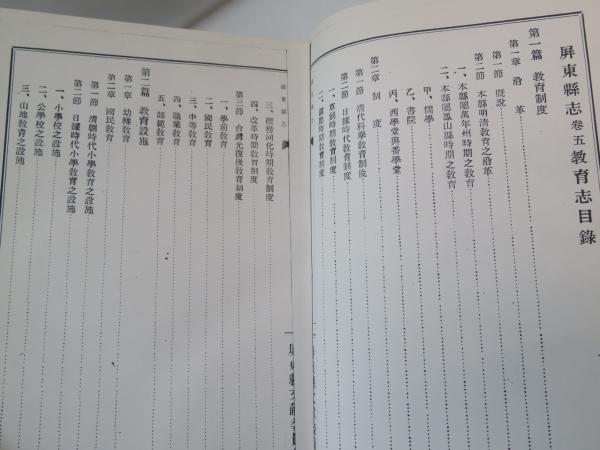 屏東縣志卷五教育志目錄
第一篇 教育制度
第一章 沿革
第一節 概說
第二節 本縣明清教育之沿革
一、本縣屬萬年州時期之教育
二、本縣屬鳳山縣時期之教育
第二章 制度
第一節 清代科舉教育制度
甲、儒學
乙、書院
丙、西學堂與番學堂
第二節 日據時代教育制度
一、草創時期教育制度
二、
三、標榜同化時期教育制度
四、改革時期教育制度
第三節 台灣光復後教育制度
一、學前教育
二、國民教育
三、中等教育
四、職業教育
五、師範教育
第二篇 教育設施
第一章 幼稚教育
第二章 國民教育
第一節 清朝時代小學教育之設施
第二節 日據時代小學教育之設施
一、小學校之設施
二、公學校之設施
三、山地教育之設施